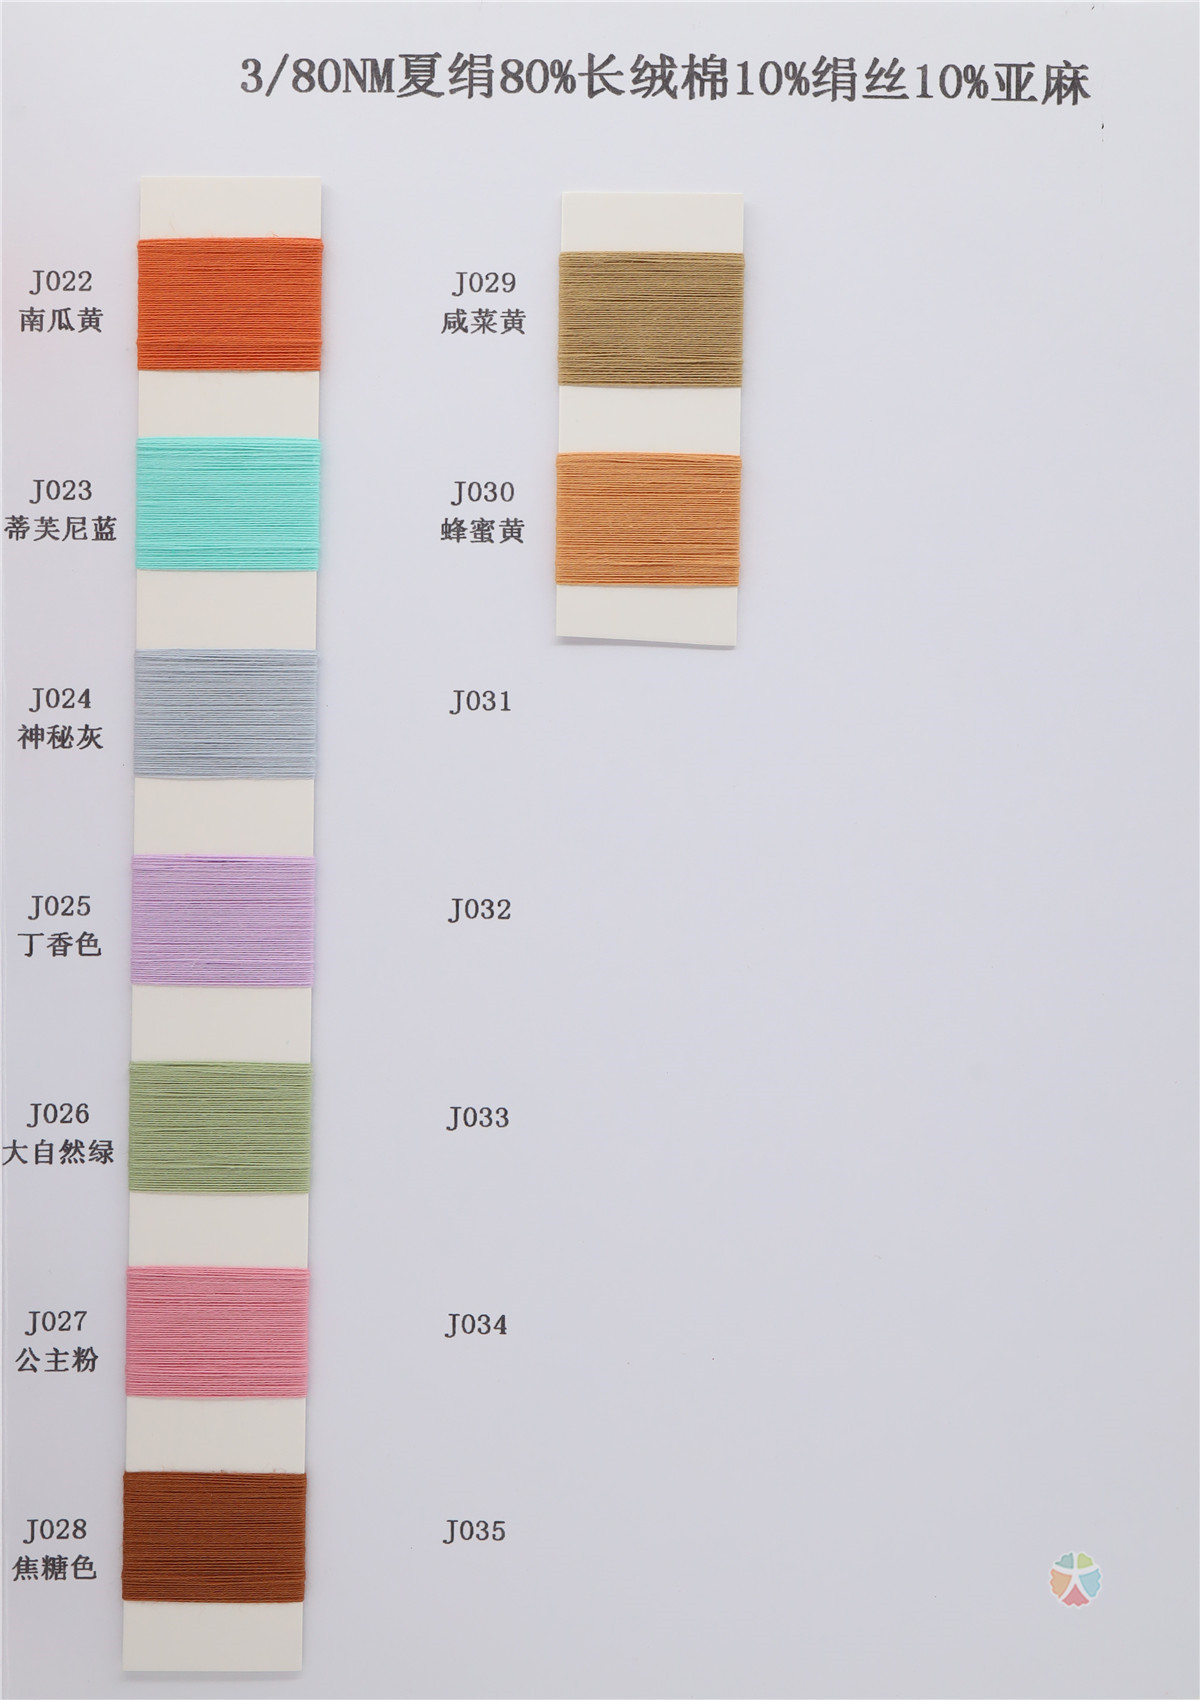 3/80NM夏绢80%长绒棉10%绢丝10%亚麻
J022
南瓜黄
J023
蒂芙尼蓝
J024
神秘灰
J025
丁香色
J026
大自然绿
J027
公主粉
J028
焦糖色
J029
咸菜黄
J030
蜂蜜黄
J031
J032
J033
J034
J035